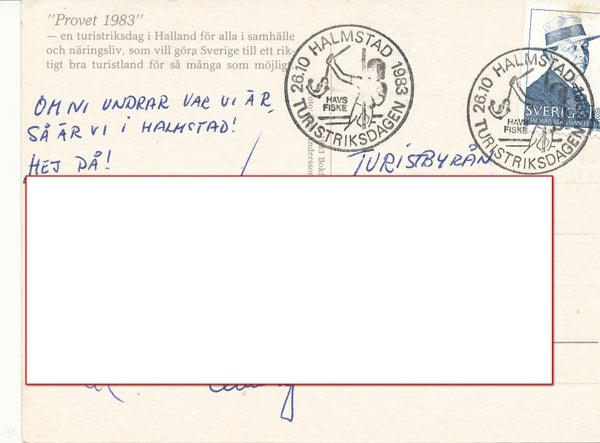 "Provet 1983"
— en turistriksdag i Halland för alla i samhälle
och näringsliv, som vill göra Sverige till ett rik-
tigt bra turistland för så många som möjligt
OM NI UNDRAR VAR VI ÄR,
SÅ ÄR VI I HALMSTAD!
HEJ DÅ!
TURISTBYRÅN
26.10 HALMSTAD 1983
HAVS
FISKE
TURISTRIKSDAGEN
26.10 HALMSTAD
HAVS
FISKE
TURISTRIKSDAGEN
SVERIGE